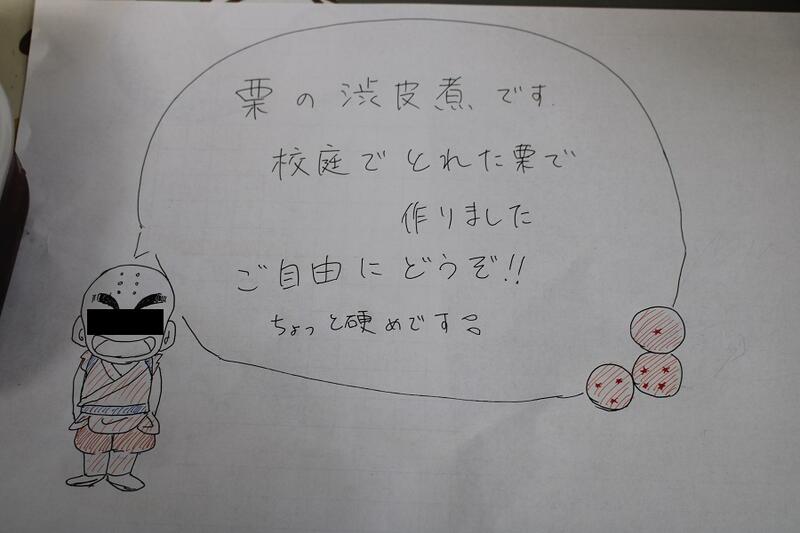 栗の渋皮煮です.
校庭でとれた栗で
作りました
ご自由にどうぞ!!
ちょっと硬めです